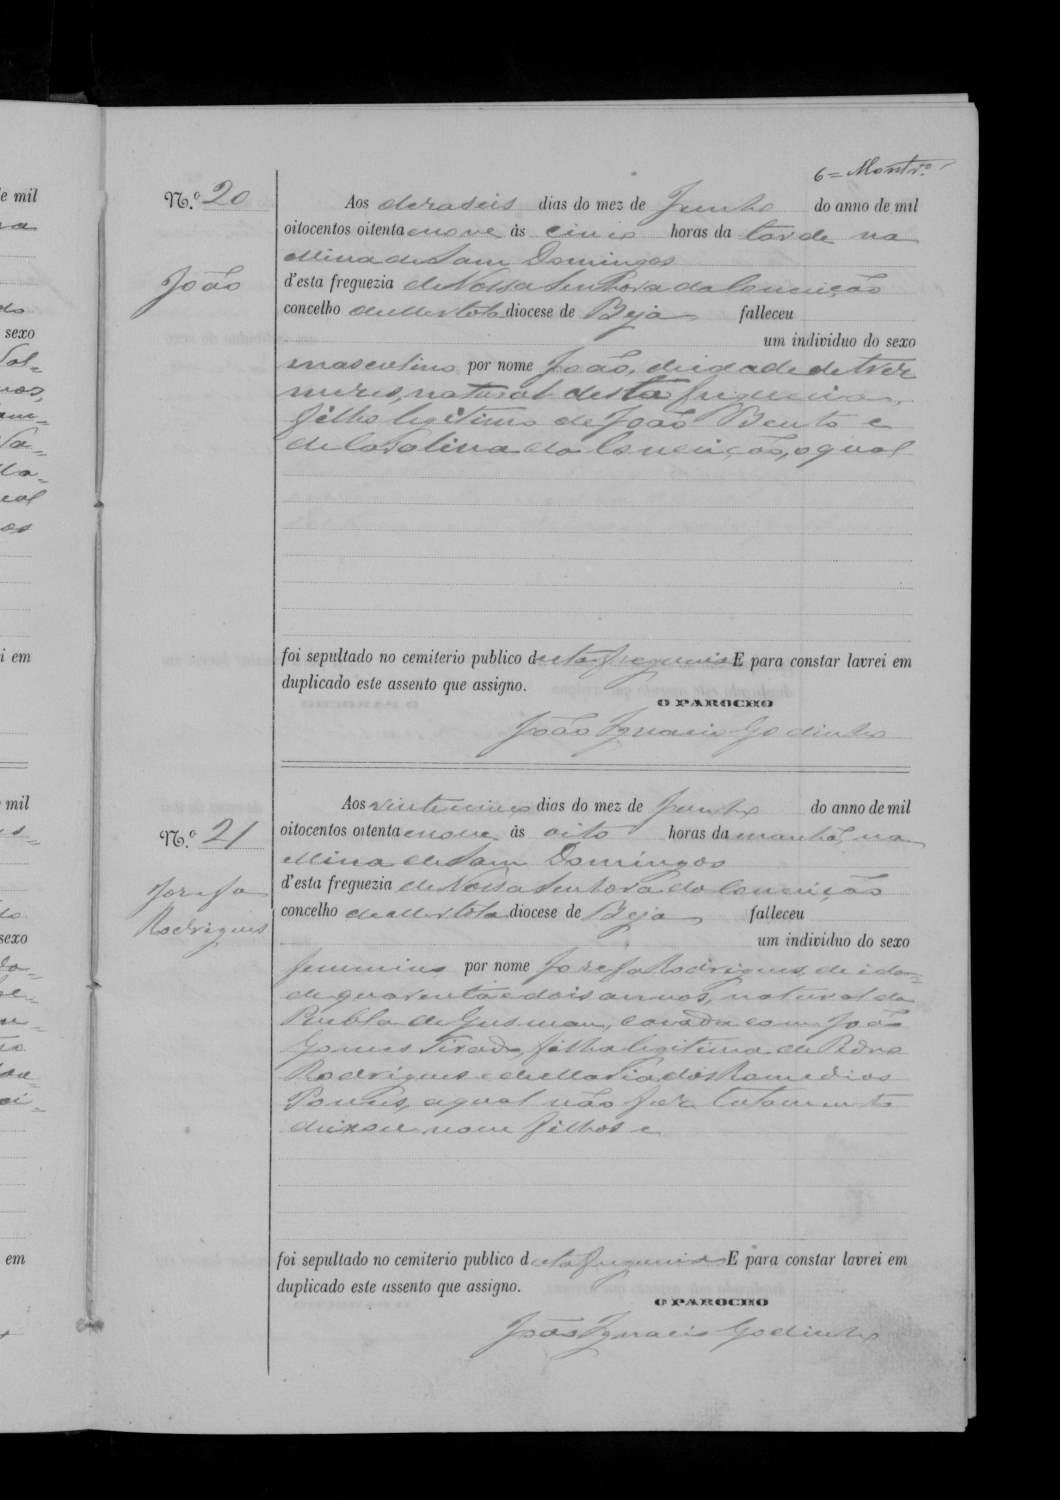 6 = Montr.º
N.º 20
João
Aos deraseis dias do mez de Junho do anno de mil
oitocentos oitenta e nove ás cinco horas da tarde na
Mina de Sam Domingos
d'esta freguezia de Nossa Senhora da Conceição
concelho de Mertola diocese de Beja falleceu
um individuo do sexo
masculino por nome João, de idade de trez
mezes, natural desta freguezia,
filho legitimo de João Bento e
de Carolina da Conceição, o qual
foi sepultado no cemiterio publico desta freguezia E para constar lavrei em
duplicado este assento que assigno.
O PAROCHO
João Ignacio Godinho
N.º 21
Josefa
Rodrigues
Aos vinte cinco dias do mez de Junho do anno de mil
oitocentos oitenta e nove ás oito horas da manhã, na
Mina de Sam Domingos
d'esta freguezia de Nossa Senhora da Conceição
concelho de Mertola diocese de Beja falleceu
um individuo do sexo
femenino por nome Josefa Rodrigues, de ida=
de quarenta e dois annos, natural da
Puebla de Gusman, casada com João
Gomes Tirado, filha legitima de Pedro
Rodrigues e de Maria dos Remedios
a qual não fez testamento
deixou nove filhos e
foi sepultado no cemiterio publico desta freguezia E para constar lavrei em
duplicado este assento que assigno.
O PAROCHO
João Ignacio Godinho